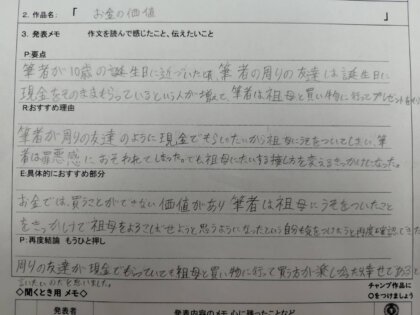 2. 作品名: 「 お金の価値 」
3. 発表メモ 作文を読んで感じたこと、伝えたいこと
P:要点
筆者が10歳の誕生日に近づいた頃、筆者の周りの友達は誕生日に
現金をそのままもらっているという人が増えて、筆者は祖母と買い物に行ってプレゼントを
R:おすすめ理由
筆者が周りの友達のように現金でもらいたいから祖母にうそをついてしまい、筆
者は罪悪感におそわれてしまった。でも祖母にたいする接し方を変えるきっかけになった。
E:具体的におすすめ部分
お金では、買うことができない価値があり筆者は祖母にうそをついたこと
をきっかけで祖母をよろこばせようと思うようになったという自分を
P:再度結論 もうひと押し
周りの友達が現金でもらっていても祖母と買い物に行って買う方が楽しみだし幸せであると
言いたいのだと思いました。
◇聞くとき用メモ◇
チャンプ作品に
○をつけましょう
発表者
発表内容のメモ 心に残ったことなど